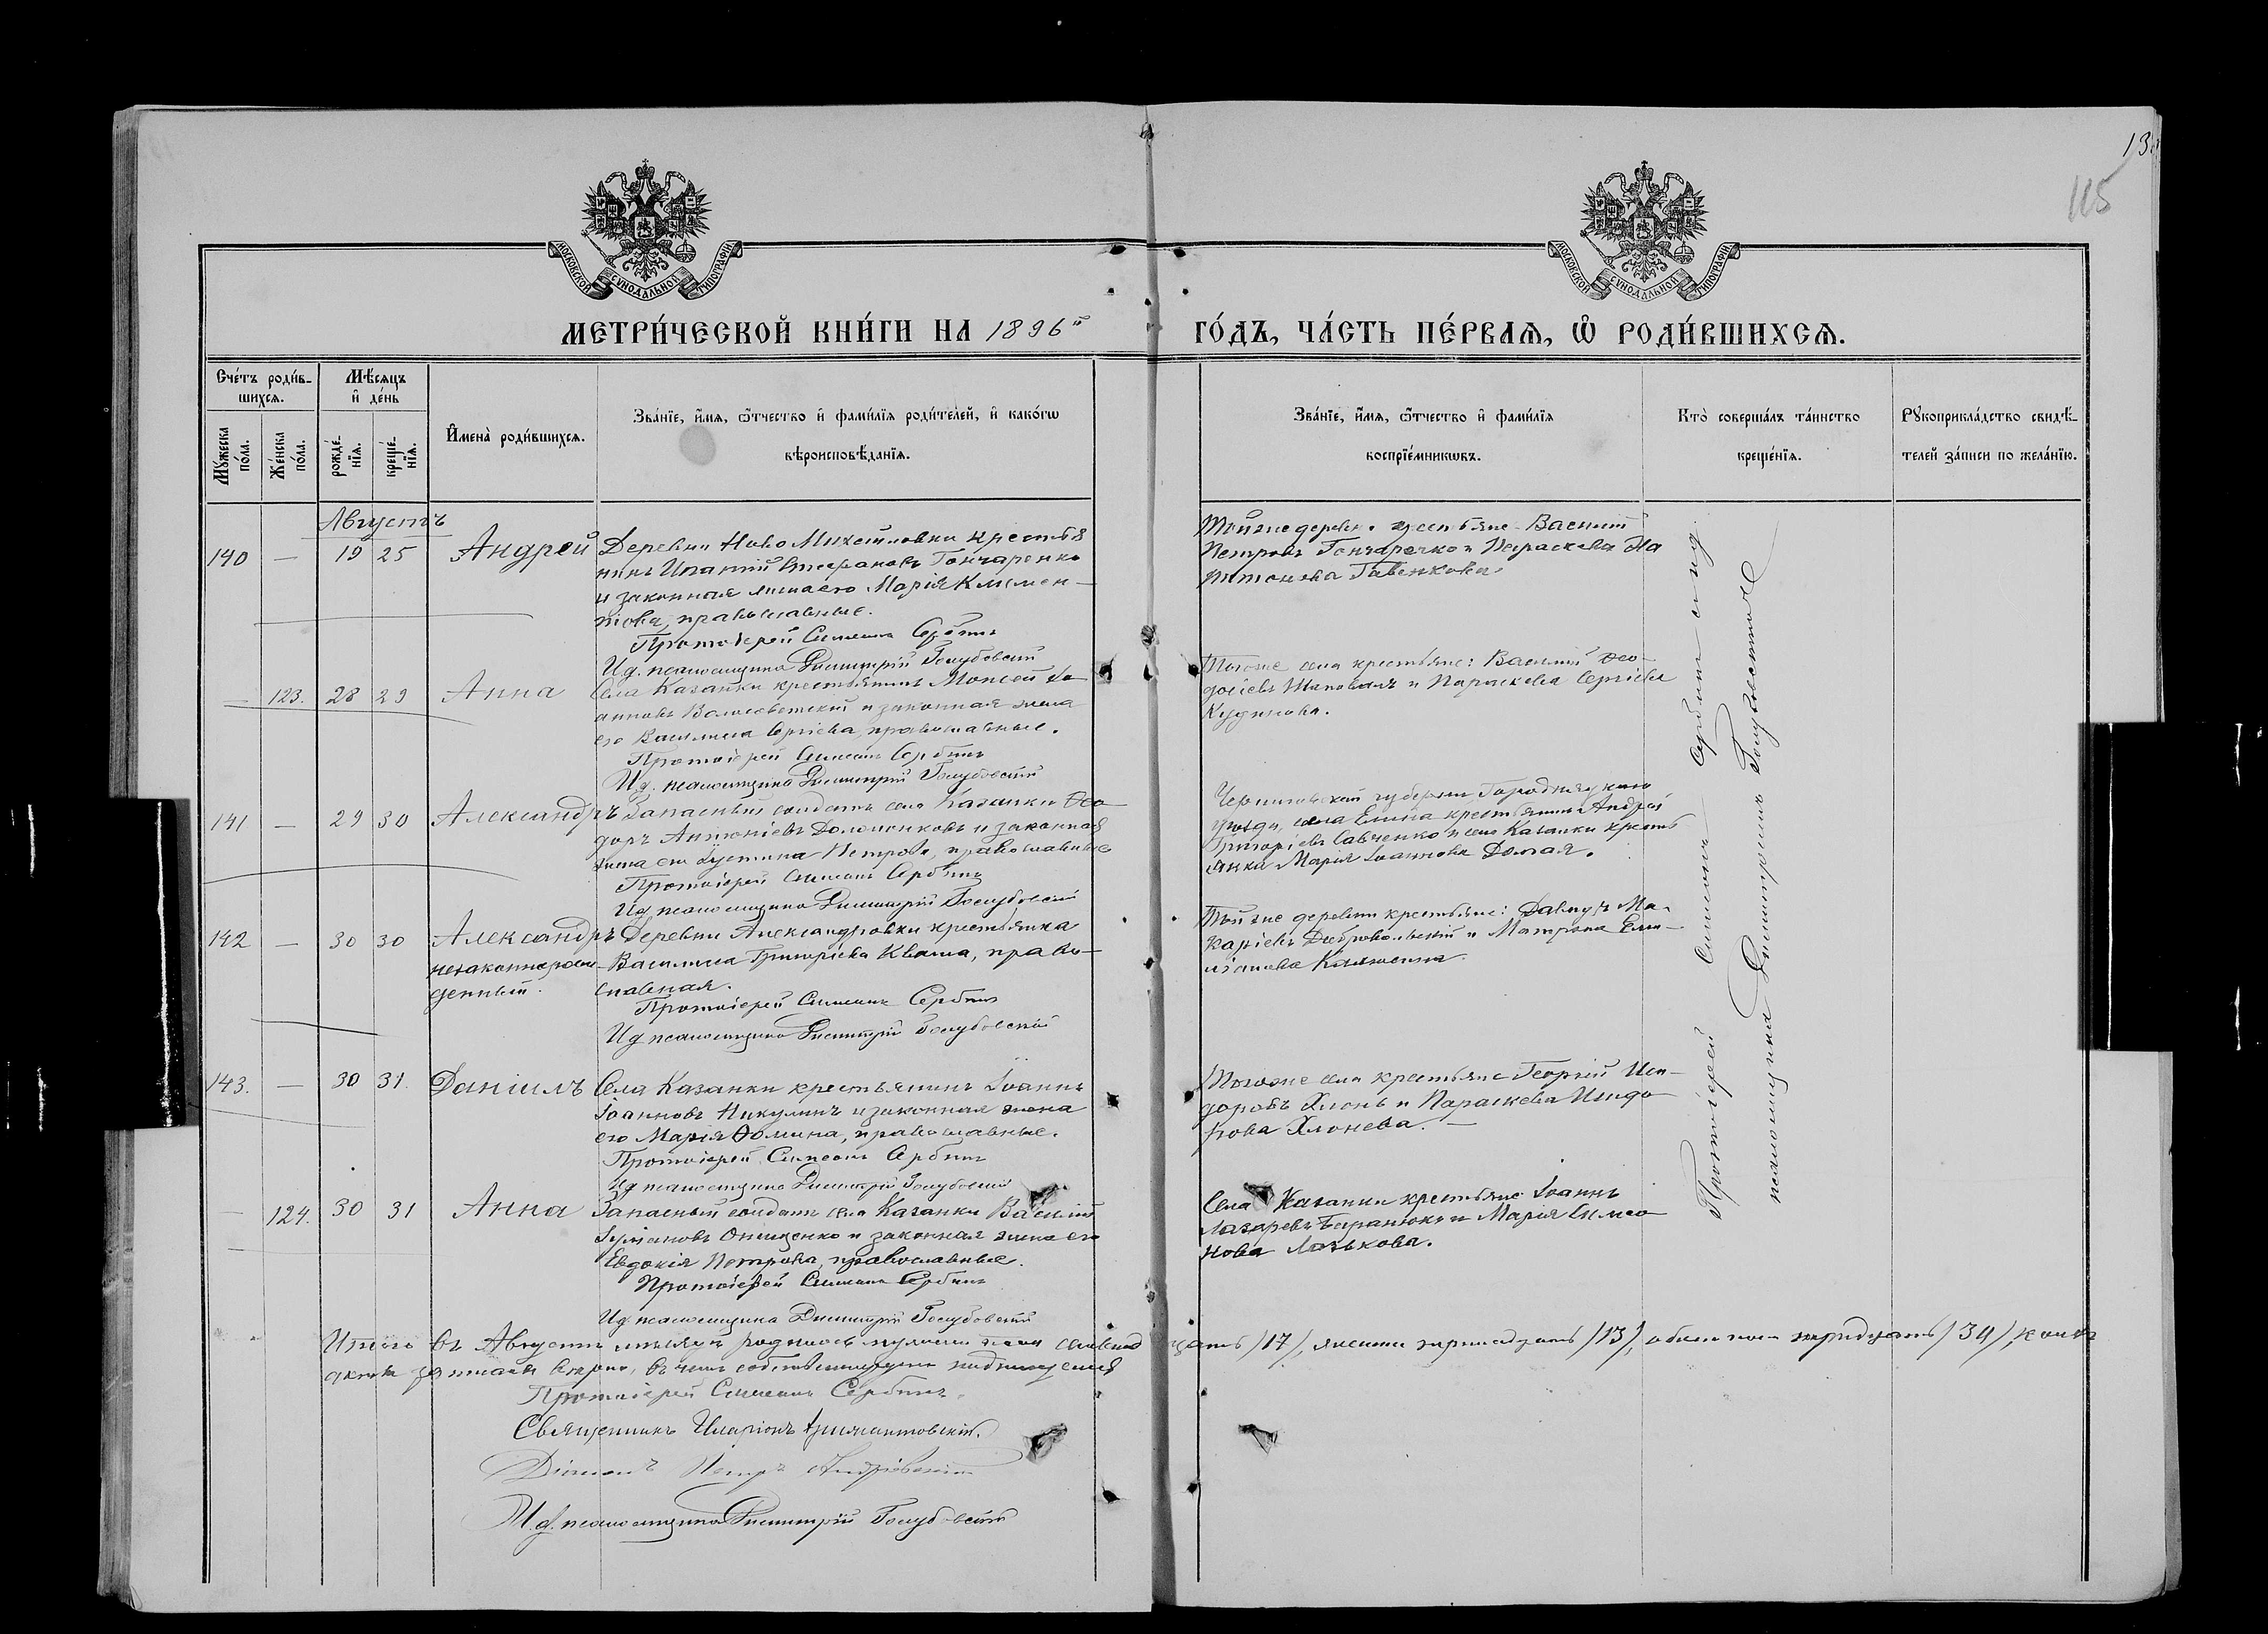 13
115
МОСКОВСКОЙ СѴНОДАЛЬНОЙ ТИПОГРАФІИ
МОСКОВСКОЙ СѴНОДАЛЬНОЙ ТИПОГРАФІИ
МЕТРИ́ЧЕСКОЙ КНИ́ГИ НА 1896й
ГО́ДЪ, ЧА́СТЬ ПЕ́РВАѦ, Ѽ РОДИ́ВШИХСѦ.
Сче́тъ роди́в-
шихсѧ.
Мѣ́сѧцъ
и҆ де́нь
Мꙋ́жеска
по́ла.
Же́нска
по́ла.
рожде́-
нїѧ.
креще́-
нїѧ.
И҆мена̀ роди́вшихсѧ.
Зва́нїе, и҆́мѧ, ѻ҆́тчество и҆ фами́лїѧ роди́телей, и҆ како́гѡ
вѣроисповѣ́данїѧ.
Зва́нїе, и҆́мѧ, ѻ҆́тчество и҆ фами́лїѧ
воспрїе́мникѡвъ.
Кто̀ соверша́лъ та́инство
креще́нїѧ.
Рꙋкоприкла́дство свидѣ́-
телей за́писи по жела́нїю.
Августъ
140 — 19 25 Андрей Деревни Ново Михайловки крестья
нинъ Ипатій Стефановъ Гончаренко
и законная жена его Марія Климен-
това, православные.
Протоіерей Симеонъ Сербинъ
И.д. псаломщика Димитрій Голубовскій
Тойже деревни крестьяне Василій
Петровъ Гончаренко и Параскева
Гавенкова.
— 123. 28 29 Анна Села Казанки крестьянинъ Моисей Іо-
анновъ и законная жена
его Василиса Сергіева, православные.
Протоіерей Симеонъ Сербинъ
И.д. псаломщика Димитрій Голубовскій
Тогоже села крестьяне: Василій Ѳео-
досіевъ Шаповалъ и Параскева Сергіева
Кудинова.
141 — 29 30 Александръ Запасный солдатъ села Казанки Ѳео-
доръ Антоніевъ и законная
жена его Іустина Петрова, православные
Протоіерей Симеонъ Сербинъ
И.д. псаломщика Димитрій Голубовскій
Черниговской губерніи Городнянскаго
уѣзда, села крестьянинъ Андрей
Григоріевъ Савченко и села Казанки кресть
янка Марія Іоаннова Долгая.
142 — 30 30 Александръ Деревни Александровки крестьянка
незаконнорож- Василиса Григоріева Кваша, право-
денный. славная.
Протоіерей Симеонъ Сербинъ
И.д. псаломщика Димитрій Голубовскій
Тойже деревни крестьяне: Давидъ Ма-
каріевъ Добровольскій и Матрона Еми-
ліанова
143. — 30 31. Даніилъ Села Казанки крестьянинъ Іоаннъ
Іоанновъ Никулинъ и законная жена
его Марія Ѳомина, православные.
Протоіерей Симеонъ Сербинъ
И.д. псаломщика Димитрій Голубовскій
Тогоже села крестьяне Георгій Иси-
доровъ Хлонь и Параскева Исидо-
рова Хлонева. —
— 124. 30 31 Анна Запасный солдатъ села Казанки Василій
Онищенко и законная жена его
Евдокія Петрова, православные.
Протоіерей Симеонъ Сербинъ
И.д. псаломщика Димитрій Голубовскій
Села Казанки крестьяне Іоаннъ
Лазаревъ Баранюкъ и Марія Симео-
нова Лазькова.
Протоіерей Симеонъ Сербинъ и и.д.
псаломщика Димитрій Голубовскій
Итого въ Августѣ мѣсяцѣ родилось мужеска пола семнад цать /17/, женска тринадцать /13/, обоего пола тридцать /30/, коихъ
Протоіерей Симеонъ Сербинъ.
Священникъ Иларіонъ
Діаконъ Петръ Андріевскій
И.д. псаломщика Димитрій Голубовскій